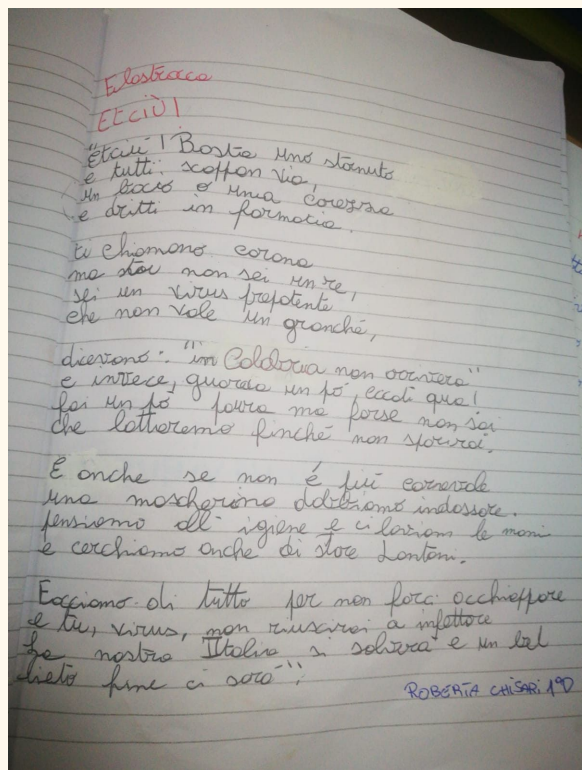 Filastrocca
ETCIÙ!
"Etciù! Basta uno starnuto
e tutti scappan via,
un bacio o una carezza
e dritti in farmacia.
ti chiamano corona
ma non sei un re,
sei un virus prepotente
che non vale un granché,
dicevano: "in Calabria non arriverà"
e invece, guarda un pó, eccoti qua!
fai un pó paura ma forse non sai
che lotteremo finché non sparirai.
E anche se non é piú carnevale
una mascherina dobbiamo indossare.
pensiamo all'igiene e ci laviam le mani
e cerchiamo anche di stare Lontani.
Facciamo di tutto per non farci acchiappare
e tu, virus, non riuscirai a infettare
La nostra Italia si salverà e un bel
lieto fine ci sarà".
ROBERTA CHISARI 1ªD